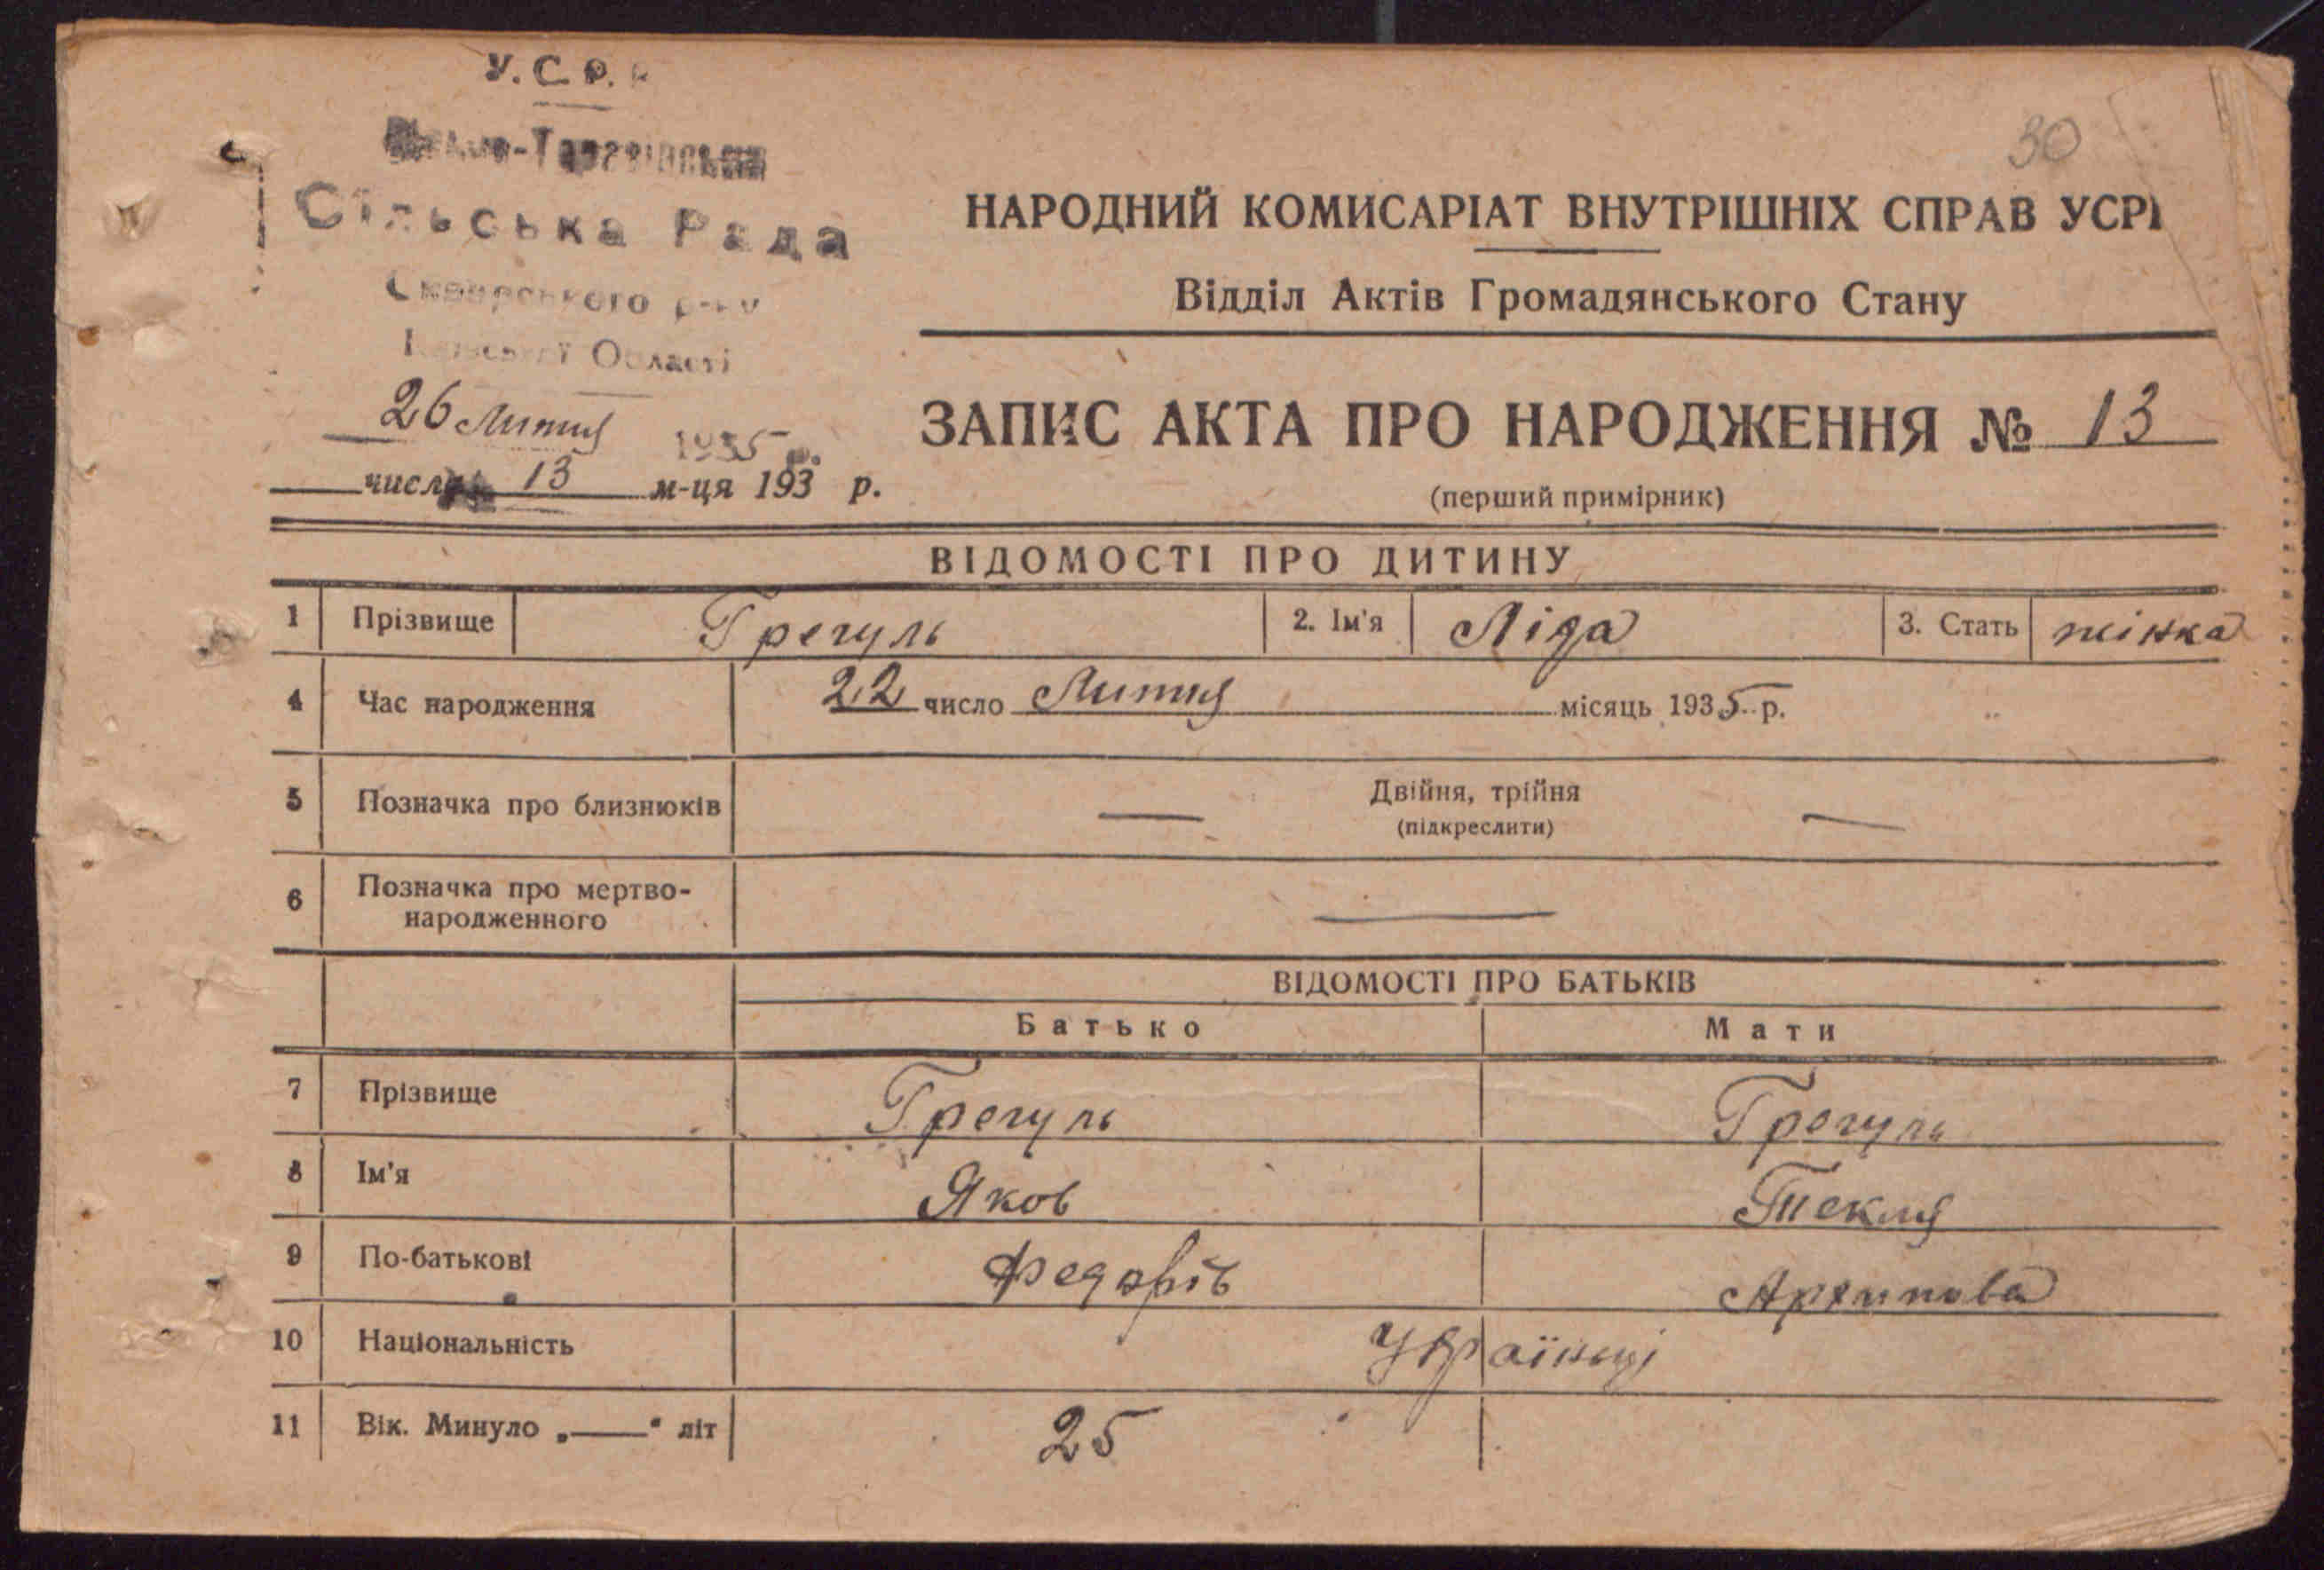 У.С.Р.Р.
Сільська Рада
Сквирського р-ну
Київської Області
30
26 Лютия 1935 р.
числа 13 м-ця 193 р.
НАРОДНИЙ КОМИСАРІАТ ВНУТРІШНІХ СПРАВ УСРР
Відділ Актів Громадянського Стану
ЗАПИС АКТА ПРО НАРОДЖЕННЯ № 13
(перший примірник)
ВІДОМОСТІ ПРО ДИТИНУ
1 Прізвище Грегуль 2. Ім'я Ліда 3. Стать жінка
4 Час народження 22 число Лютия місяць 1935 р.
5 Позначка про близнюків — Двійня, трійня —
(підкреслити)
6 Позначка про мертво-
народженного —
ВІДОМОСТІ ПРО БАТЬКІВ
Батько Мати
7 Прізвище Грегуль Грегуль
8 Ім'я Яков Текля
9 По-батькові Федорів Архипова
10 Національність Українці
11 Вік. Минуло „——" літ 25